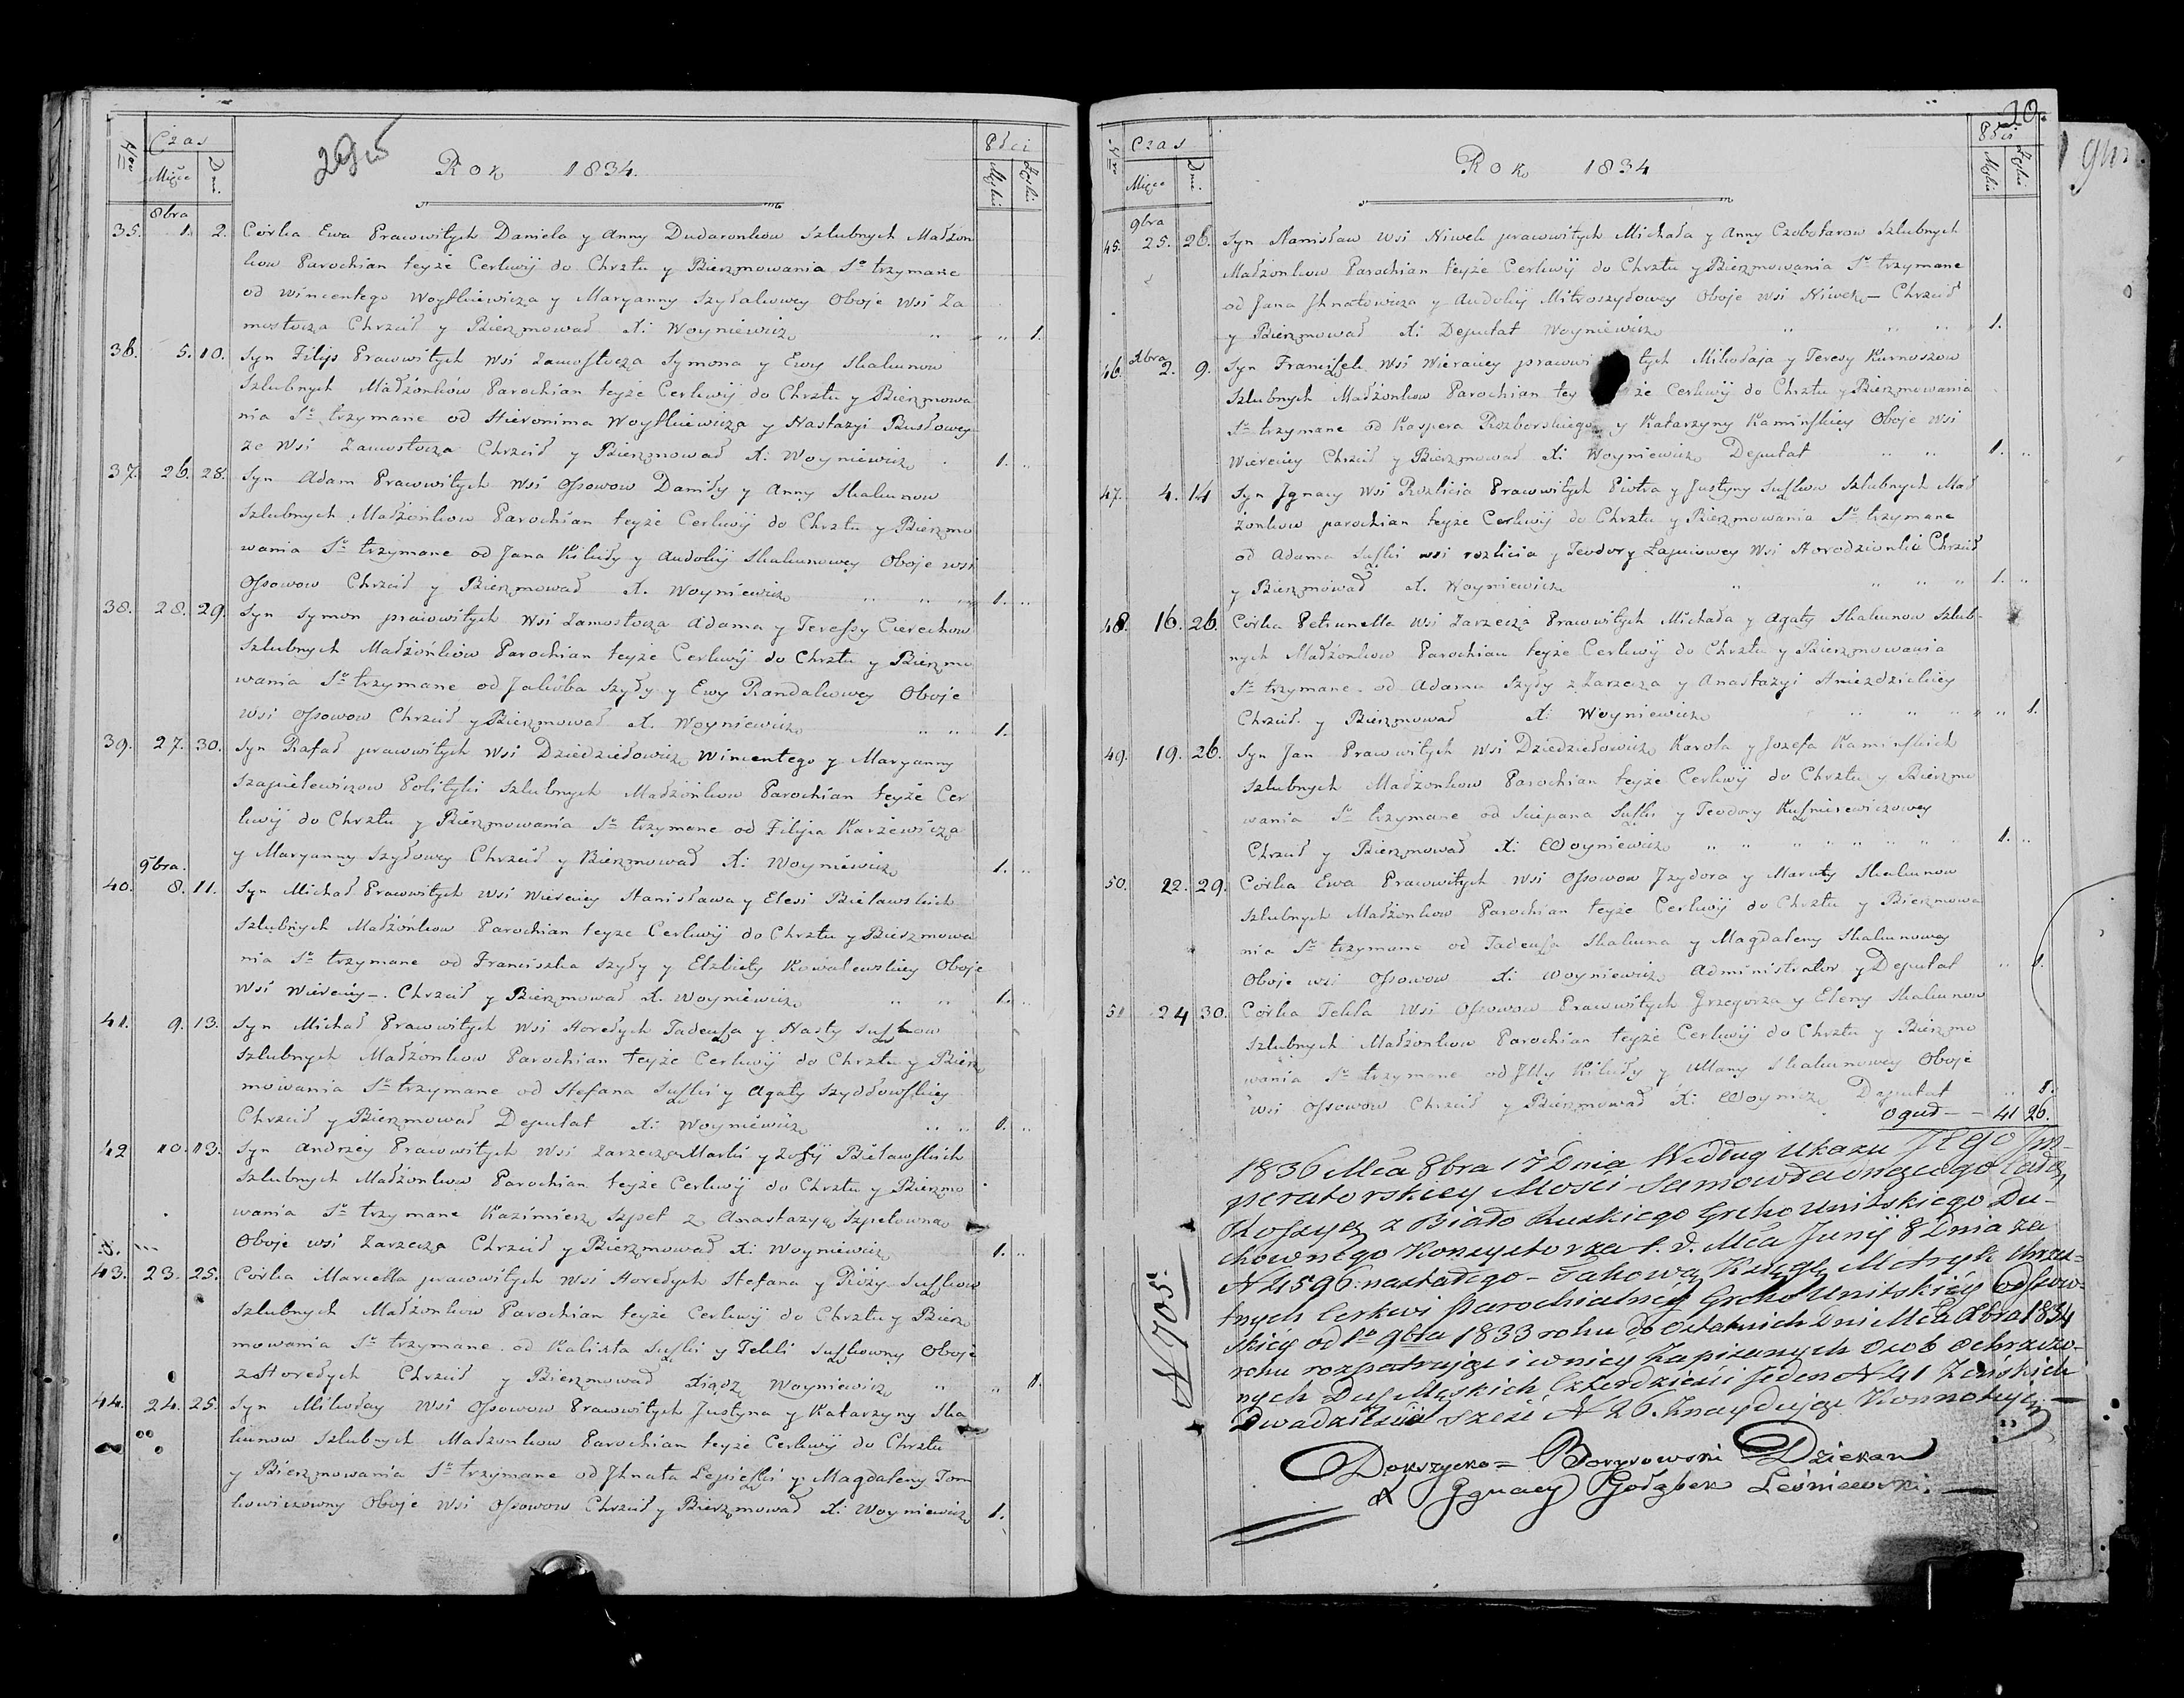 Nro Czas Płci
Miesc Dni Męskiej Żeńskiej
29
Rok 1834.
8bra
35. 1. 2. Córka Ewa Prawowitych Daniela y Anny Dudaronkow szlubnych Małżon
kow Parochian teyże Cerkwij do Chrztu y Bierzmowania So trzymane
od Wincentego Woytkiewicza y Maryanny Szydałowey Oboje wsi Za
mostocza Chrzcił y Bierzmował X: Woyniewicz „ „ 1.
36. 5. 10. Syn Filip Prawowitych wsi Zamostocza Symona y Ewy Skakunow
szlubnych Małżónków Parochian teyże Cerkwij do Chrztu y Bierzmowa
nia So trzymane od Hieronima Woytkiewicza y Nastazyi Busłowey
ze wsi Zamostocza Chrzcił y Bierzmował X: Woyniewicz 1. „
37. 26. 28. Syn Adam Prawowitych wsi Ossowow Daniły y Anny Skakunow
szlubnych Małżónkow Parochian teyże Cerkwij do Chrztu y Bierzmo
wania So trzymane od Jana Kikiły y Audokij Skakunowey Oboje wsi
Ossowow Chrzcił y Bierzmował X. Woyniewicz „ „ „ 1. „
38. 28. 29. Syn Symon prawowitych wsi Zamostocza Adama y Teressy Cierechow
szlubnych Małżónków Parochian teyże Cerkwij do Chrztu y Bierzmo
wania So trzymane od Jakóba Szyły y Ewy Randakowey Oboje
wsi Ossowow Chrzcił y Bierzmował X. Woyniewicz „ „ 1.
39. 27. 30. Syn Rafał prawowitych wsi Dziedziełowicz Wincentego y Maryanny
Szapielewiczow Polityki szlubnych Małżónkow Parochian teyże Cer
kwij do Chrztu y Bierzmowania So trzymane od Filipa Karżewicza
y Maryanny Szyłowey Chrzcił y Bierzmował X: Woyniewicz 1. „
9bra.
40. 8. 11. Syn Michał Prawowitych wsi Wierciey Stanisława y Elesi Bielawskich
szlubnych Małżónkow Parochian teyze Cerkwij do Chrztu y Bierzmowa
nia So trzymane od Franciszka Szyły y Elzbiety Kowalewskiey Oboje
wsi Wierciey –. Chrzcił y Bierzmował X. Woyniewicz „ „ 1. „
41. 9. 13. Syn Michał Prawowitych wsi Horełych Tadeusza y Nasty Suszkow
szlubnych Małżónkow Parochian teyże Cerkwij do Chrztu y Bierz
mowania So trzymane od Stefana Suszki y Agaty Szydłowskiey
Chrzcił y Bierzmował Deputat X: Woyniewicz „ „ 1. „
42 10. 13. Syn Andrzey Prawowitych wsi Zarzecza Marki y Zofij Bielawskich
szlubnych Małżónkow Parochian teyże Cerkwij do Chrztu y Bierzmo
wania So trzymane Kazimierz Szpet z Anastazyą Szpetowna
Oboje wsi Zarzecza Chrzcił y Bierzmował X: Woyniewicz 1. „
43. 23. 25. Córka Marcella prawowitych wsi Horełych Stefana y Róży Suszkow
szlubnych Małżónkow Parochian teyże Cerkwij do Chrztu y Bierz
mowania So trzymane od Kalixta Suszki y Tekli Suszkowny Oboje
z Horełych Chrzcił y Bierzmował Xiądz Woyniewicz „ „ 1.
44. 24. 25. Syn Mikołay wsi Ossowow Prawowitych Justyna y Katarzyny Ska
kunow szlubnych Małzonkow Parochian teyże Cerkwij do Chrztu
y Bierzmowania So trzymane od Ihnata Lepieszki y Magdaleny Tom
kowiczowny Oboje wsi Ossowow Chrzcił y Bierzmował X: Woyniewicz 1.
30.
Nro Czas Płci
Miesc Dni Męskiej Żeńskiej
Rok 1834
9bra
45. 25. 26. Syn Stanisław wsi Niwek prawowitych Michała y Anny Czobotarow szlubnych
Małżonkow Parochian teyże Cerkwij do Chrztu y Bierzmowania So trzymane
od Jana Ihnatowicza y Audokij Mitroszyłowey Oboje wsi Niwek – Chrzcił
y Bierzmował X: Deputat Woyniewicz „ „ „ 1.
Xbra
46. 2. 9. Syn Franciszek wsi Wierciey prawowitych Mikołaja y Teresy Kurnoszow
szlubnych Małżonkow Parochian teyże Cerkwij do Chrztu y Bierzmowania
So trzymane od Kaspera Rozborskiego y Katarzyny Kamińskiey Oboje wsi
Wierciey Chrzcił y Bierzmował X: Woyniewicz Deputat „ „ 1. „
47. 4. 14 Syn Jgnacy wsi Rozlicia Prawowitych Piotra y Justyny Suszkow szlubnych Mał
żonkow parochian teyże Cerkwij do Chrztu y Bierzmowania So trzymane
od Adama Suszki wsi rozlicia y Teodory Łapciowey wsi Horodzionkie Chrzcił
y Bierzmował X. Woyniewicz „ „ „ „ 1. „
48. 16. 26. Córka Petrunella wsi Zarzecza Prawowitych Michała y Agaty Skakunow szlub-
nych Małżonkow Parochian teyże Cerkwij do Chrztu y Bierzmowania
So trzymane od Adama Szyły z Zarzecza y Anastazyi Hniezdzickiey
Chrzcił y Bierzmował X: Woyniewicz „ „ „ „ 1.
49. 19. 26. Syn Jan Prawowitych wsi Dziedziełowicz Karola y Jozefa Kamińskich
szlubnych Małżonkow Parochian teyże Cerkwij do Chrztu y Bierzmo
wania So trzymane od Sciepana Suszki y Teodory Kuszmierewiczowey
Chrzcił y Bierzmował X: Woyniewicz „ „ „ „ „ „ 1. „
50. 22. 29. Córka Ewa Prawowitych wsi Ossowow Jzydora y Maruty Skakunow
szlubnych Małżonkow Parochian teyże Cerkwij do Chrztu y Bierzmowa
nia So trzymane od Tadeusza Skakuna y Magdaleny Skakunowey
Oboje wsi Ossowow X: Woyniewicz Administrator y Deputat „ 1.
51 24 30. Córka Tekla wsi Ossowow Prawowitych Grzegorza y Eleny Skakunow
szlubnych Małżonkow Parochian teyże Cerkwij do Chrztu y Bierzmo
wania So trzymane od Illy Kikiły y Ullany Skakunowey Oboje
wsi Ossowow Chrzcił y Bierzmował X: Woynicz Deputat „ 1.
Oguł – – 41 26.
1836 Mca 8bra 17 Dnia Według Ukazu Jego Jm-
peratorskiey Mości Samowładnącego Całą
Rossyą z Biało Ruskiego Greko Unitskiego Du-
chownego Konsystorza t. r. Mca Junij 8 Dnia za
N 4596. nastałego – Takową Księgę Metryk Chrzes-
tnych Cerkwi Parochialney Greko Unitskiey Ossow-
skiey od 1o 9bra 1833 roku do Ostatnich Dni Mca Xbra 1834
roku rozpatrując i wniey Zapisanych Osob Ochrzczo-
nych Dusz Męskich Czterdzieści Jeden N 41 Żeńskich
Dwadzieścia sześć N 26. Znaydując Konnotuję. –
N 705.
Dokszycko = Borysowski Dziekan
X Jgnacy Gołąbek Leśniewski. –